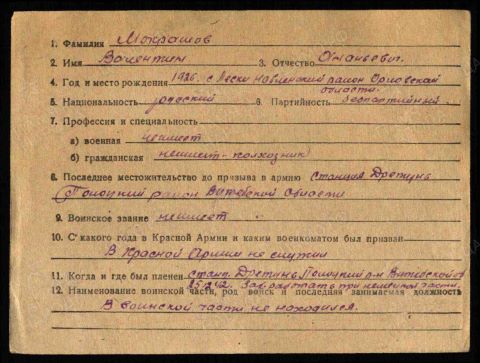 1. Фамилия Мокрашов
2. Имя Валентин 3. Отчество Ананьевич.
4. Год и место рождения 1926. с Лески Навлинский район Орловской
области.
5. Национальность русский 6. Партийность беспартийный.
7. Профессия и специальность
а) военная неимеет
б) гражданская неимеет-колхозник
8. Последнее местожительство до призыва в армию Станция Дретунь
Полоцкий район Витебской области
9. Воинское звание неимеет
10. С какого года в Красной Армии и каким военкоматом был призван
В Красной Армии не служил
11. Когда и где был пленен Станц. Дретунь Полоцкий р-н Витебской об
12. Наименование воинской части, род войск и последняя занимаемая должность
В воинской части не находился.